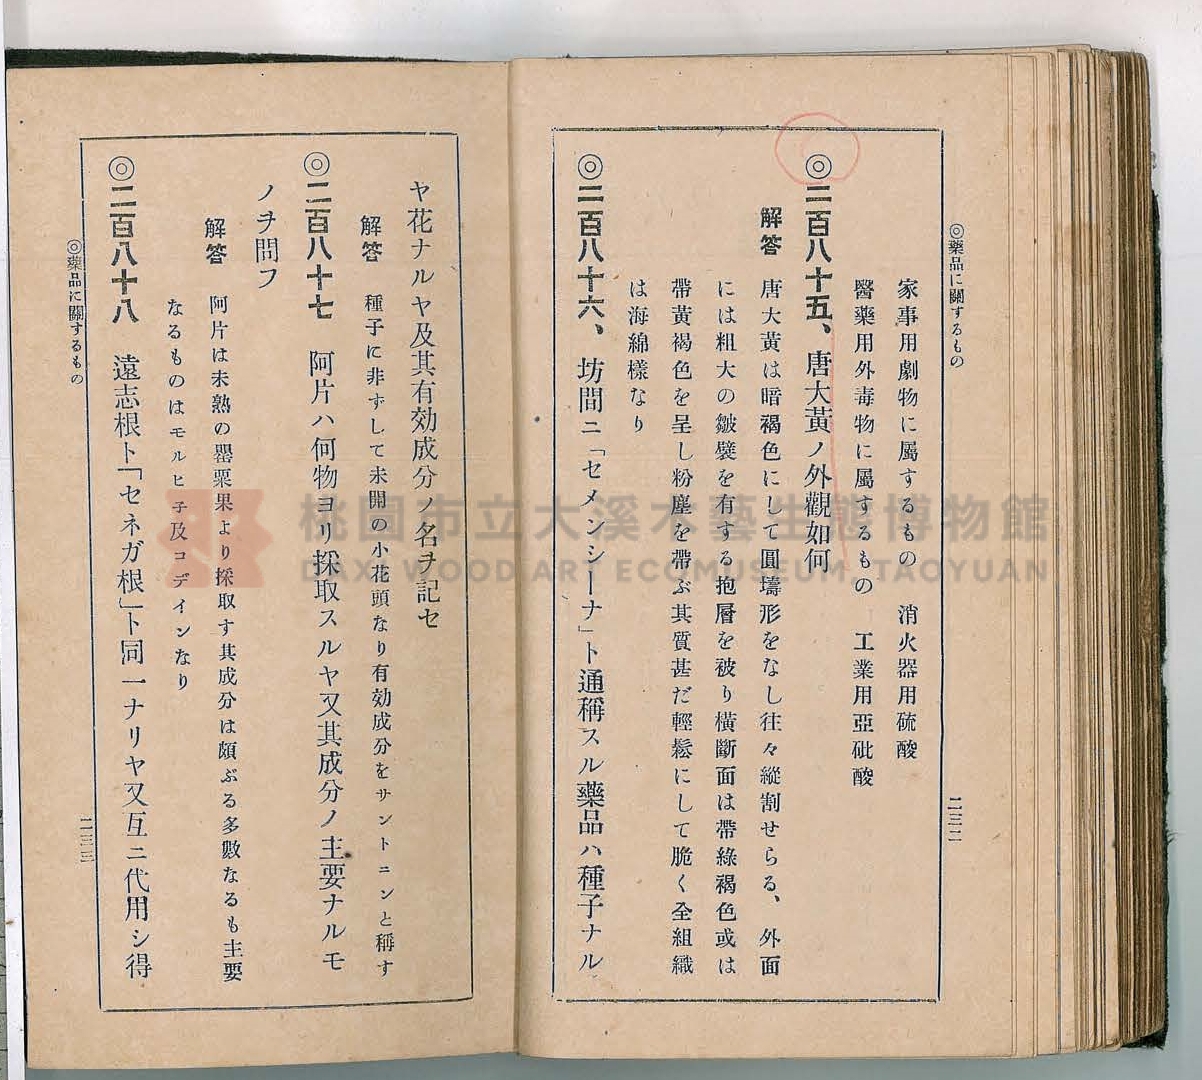 ◎藥品に關するもの
二三二
家事用劇物に屬するもの　消火器用硫酸
醫藥用外毒物に屬するもの　工業用亞砒酸
◎二百八十五、唐大黃ノ外觀如何
解答　唐大黃は暗褐色にして圓壔形をなし往々縱割せらる、外面
には粗大の皺襞を有する抱層を被り橫斷面は帶綠褐色或は
帶黃褐色を呈し粉塵を帶ぶ其質甚だ輕鬆にして脆く全組織
は海綿樣なり
◎二百八十六、坊間ニ「セメンシーナ」ト通稱スル藥品ハ種子ナル
ヤ花ナルヤ及其有効成分ノ名ヲ記セ
解答　種子に非ずして未開の小花頭なり有効成分をサントニンと稱す
◎二百八十七　阿片ハ何物ヨリ採取スルヤ又其成分ノ主要ナルモ
ノヲ問フ
解答　阿片は未熟の罌粟果より採取す其成分は頗ぶる多數なるも主要
なるものはモルヒ子及コデインなり
◎二百八十八　遠志根ト「セネガ根」ト同一ナリヤ又互ニ代用シ得
◎藥品に關するもの
二三三
桃園市立大溪木藝生態博物館
DAXI WOOD ART ECOMUSEUM, TAOYUAN